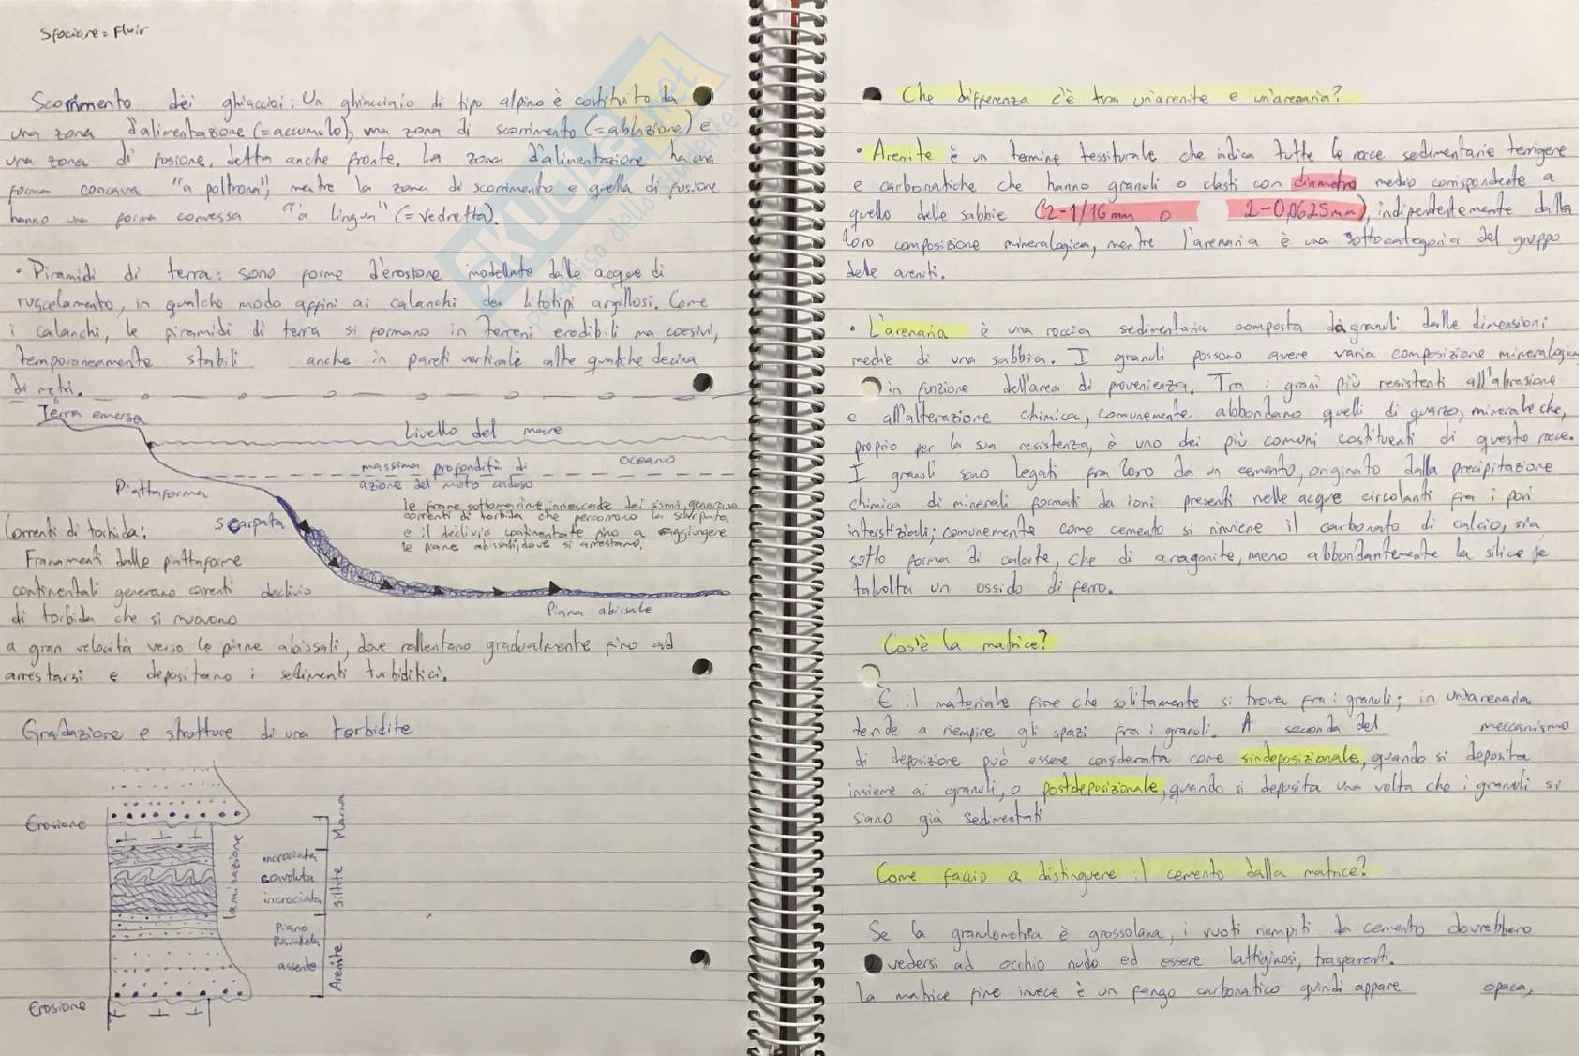 Scorrimento dei ghiacciai: Un ghiacciaio di tipo alpino è costituito da
una zona d'alimentazione (=accumulo), una zona di scorrimento (=ablazione) e
una zona di fusione, detta anche fronte. La zona d'alimentazione ha una
forma concava "a poltrona", mentre la zona di scorrimento e quella di fusione
hanno una forma convessa "a lingua" (=vedretta).
• Piramidi di terra: sono forme d'erosione modellate dalle acque di
ruscellamento, in qualche modo affini ai calanchi dei litotipi argillosi. Come
i calanchi, le piramidi di terra si formano in terreni erodibili ma coesivi,
temporaneamente stabili anche in pareti verticali alte qualche decina
di metri.
Terra emersa
Livello del mare
massima profondità di
azione del moto ondoso
oceano
Piattaforma
scarpata
le frane sottomarine, innescate dei sismi, generano
correnti di torbida che percorrono la scarpata
e il declivio continentale fino a raggiungere
le piane abissali, dove si arrestano.
declivio
Piana abissale
Correnti di torbida:
Franamenti dalle piattaforme
continentali generano correnti
di torbida che si muovono
a gran velocità verso le piane abissali, dove rallentano gradualmente fino ad
arrestarsi e depositano i sedimenti turbiditici.
Gradazione e strutture di una torbidite
Erosione
Erosione
laminazione
incrociata
convoluta
incrociata
Piano
Parallela
assente
Marna
Siltite
Arenite
Che differenza c'è tra un'arenite e un'arenaria?
• Arenite è un termine tessiturale che indica tutte le rocce sedimentarie terrigene
e carbonatiche che hanno granuli o clasti con diametro medio corrispondente a
quello delle sabbie (2-1/16 mm o 2-0,0625mm), indipendentemente dalla
loro composizione mineralogica, mentre l'arenaria è una sottocategoria del gruppo
delle areniti.
• L'arenaria è una roccia sedimentaria composta da granuli dalle dimensioni
medie di una sabbia. I granuli possono avere varia composizione mineralogica
in funzione dell'area di provenienza. Tra i grani più resistenti all'abrasione
e all'alterazione chimica, comunemente abbondano quelli di quarzo, minerale che,
proprio per la sua resistenza, è uno dei più comuni costituenti di queste rocce.
I granuli sono legati fra loro da un cemento, originato dalla precipitazione
chimica di minerali formati da ioni presenti nelle acque circolanti fra i pori
interstiziali; comunemente come cemento si rinviene il carbonato di calcio, sia
sotto forma di calcite, che di aragonite, meno abbondantemente la silice e
talvolta un ossido di ferro.
Cos'è la matrice?
È il materiale fine che solitamente si trova fra i granuli; in un'arenaria
tende a riempire gli spazi fra i granuli. A seconda del meccanismo
di deposizione può essere considerata come sindeposizionale, quando si deposita
insieme ai granuli, o postdeposizionale, quando si deposita una volta che i granuli si
siano già sedimentati
Come faccio a distinguere il cemento dalla matrice?
Se la granulometria è grossolana, i vuoti riempiti da cemento dovrebbero
vedersi ad occhio nudo ed essere lattiginosi, trasparenti.
La matrice fine invece è un fango carbonatico quindi appare opaca,